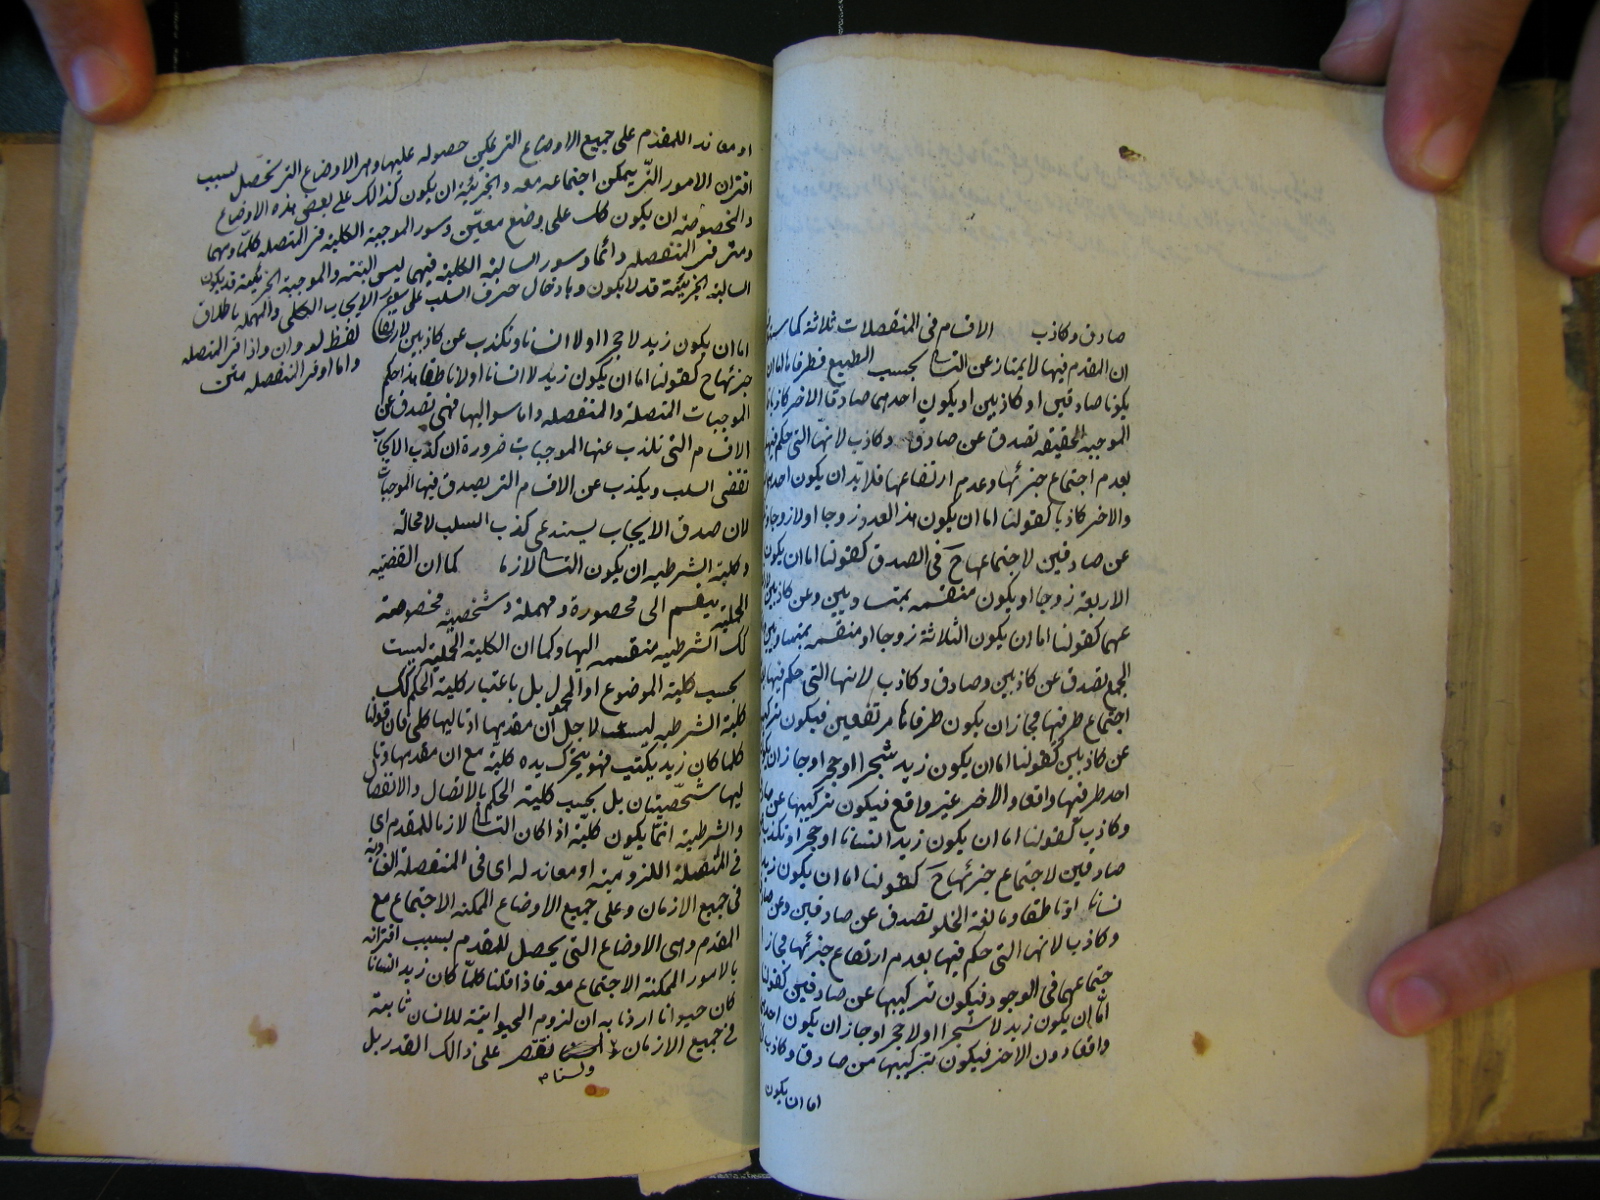 صادق وكاذب الاقسام فى المنفصلات ثلاثة كما سبق
ان المقدم فيها لا يمتاز عن التالى بحسب الطبع فطرفاها اما ان
يكونا صادقين او كاذبين او يكون احدهما صادقا والاخر كاذبا
الموجبة الحقيقة تصدق عن صادق وكاذب لانها التى حكم فيها
بعدم اجتماع جزئيها وعدم ارتفاعها فلا بد ان يكون احدهما
والاخر كاذبا كقولنا اما ان يكون هذا العدد زوجا او لا زوجا
عن صادقين لاجتماعهما ح فى الصدق كقولنا اما ان يكون
الاربعة زوجا او يكون منقسمة بمتساويين وعن كاذبين
عهما كقولنا اما ان يكون الثلاثة زوجا او منقسمة بمتساويين
الجمع تصدق عن كاذبين وصادق وكاذب لانها التى حكم فيها
اجتماع طرفيها فجاز ان يكون طرفاها مرتفعين فيكون
عن كاذبين كقولنا اما ان يكون زيد شجرا او حجرا وجاز ان يكون
احد طرفيها واقعا والاخر غير واقع فيكون تركيبها عن
وكاذب كقولنا اما ان يكون زيد انسانا او حجرا وتكذب
صادقين لاجتماع جزئيها ح كقولنا اما ان يكون زيد
نسانا او ناطقا ومانعة الخلو تصدق عن صادقين وعن
وكاذب لانها التى حكم فيها بعدم ارتفاع جزئيها فجاز
جتماعهما فى الوجود فيكون تركيبها عن صادقين كقولنا
اما ان يكون زيد لا شجرا او لا حجرا وجاز ان يكون احدهما
واقعا دون الاخر فيكون تركيبها من صادق وكاذب
اما ان يكون
او معاندا للمقدم على جميع الاوضاع التى يمكن حصوله عليها وهى الاوضاع التى تحصل بسبب
اقتران الامور التى يمكن اجتماعه معه والجزئية ان يكون كذالك على بعض هذه الاوضاع
والمخصوصة ان يكون كك على وضع معين وسور الموجبة الكلية فى المتصلة كلما ومهما
ومتى وفى المنفصله دائما وسور السالبة الكلية فيهما ليس البتة والموجبة الجزئية قد يكون
السالبة الجزئية قد لا يكون وبادخال حرف السلب على سور الايجاب الكلى والمهملة باطلاق
لفظ لو وان واذا فى المتصله
واما او فى المنفصله متن
اما ان يكون زيد لا حجرا او لا انسانا وتكذب عن كاذبين لارتفاع
جزئيها ح كقولنا اما ان يكون زيد لا انسانا او لا ناطقا هذا حكم
الموجبات المتصلة والمنفصله واما سواليها فهى تصدق عن
الاقسام التى تكذب عنها الموجبات ضرورة ان كذب الايجاب
تقتضى السلب ويكذب عن الاقسام التى يصدق فيها الموجبات
لان صدق الايجاب يستدعى كذب السلب لا محالة
وكلية الشرطيه ان يكون التالى لازما كما ان القضيه
الحملية ينقسم الى محصورة ومهملة وشخصية مخصوصة
كك الشرطيه منقسمه اليها وكما ان الكلية الحملية ليست
بحسب كلية الموضوع او المحمول بل باعتبار كلية الحكم كك
كلية الشرطيه ليست لاجل ان مقدمها او تاليها كلى فان قولنا
كلما كان زيد يكتب فهو يتحرك يده كلية مع ان مقدمها وتا
ليها شخصيتان بل بحسب كلية الحكم بالاتصال والانفصال
والشرطية انما يكون كلية اذا كان التالى لازما للمقدم اى
فى المتصلة اللزومية او معاند له اى فى المنفصلة العنادية
فى جميع الازمان وعلى جميع الاوضاع الممكنه الاجتماع مع
المقدم وهى الاوضاع التى يحصل للمقدم بسبب اقترانه
بالامور الممكنة الاجتماع معه فاذا قلنا كلما كان زيد انسانا
كان حيوانا اردنا به ان لزوم الحيوانية للانسان ثابتة
فى جميع الازمان نقتصر على ذالك القدر بل
ولسنا